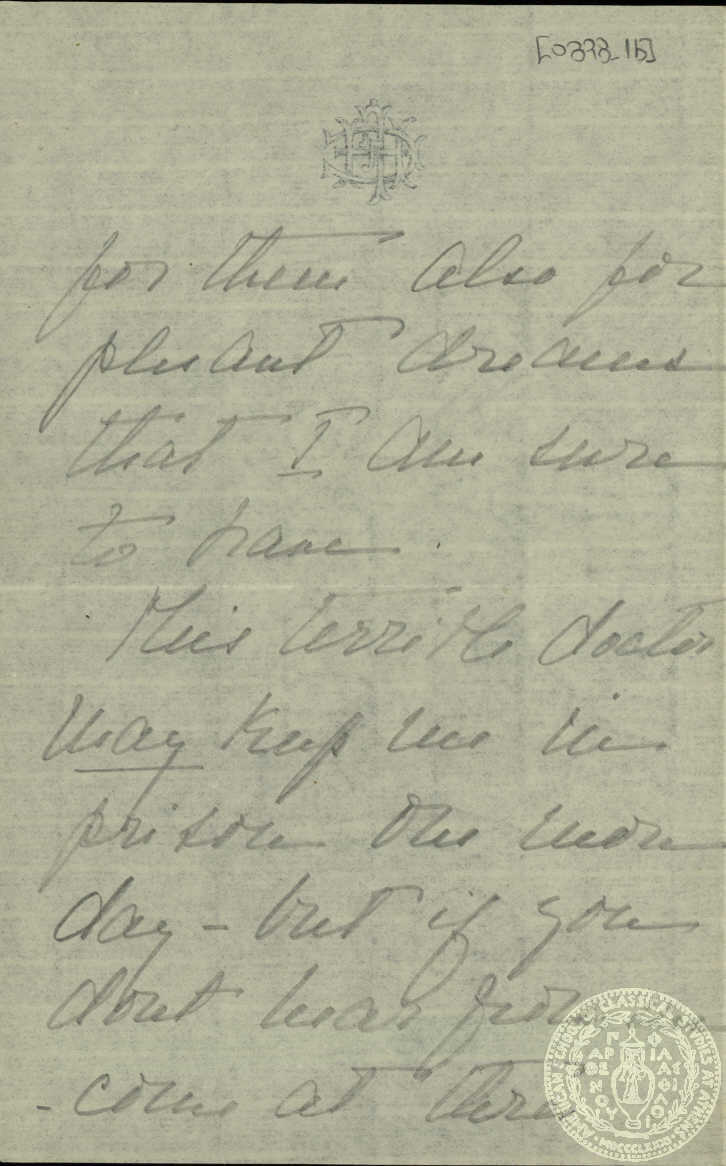 [0333_1b]
for them also for
plesant dreams
that I am sure
to have.
This terrible doctor
may keep me in
prison one more
day - but if you
dont hear from
- come at three
AMERICAN SCHOOL OF CLASSICAL STUDIES AT ATHENS
ΠΑΡΘΕΝΟΥ ΦΙΛΑΣ ΦΙΛΟΙ
MDCCCLXXXI